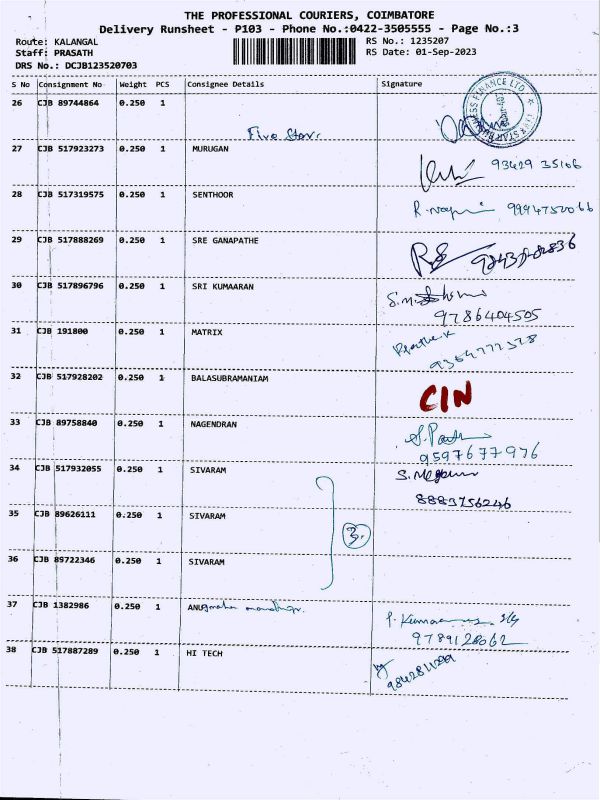 THE PROFESSIONAL COURIERS, COIMBATORE
Delivery Runsheet - P103 - Phone No.:0422-3505555 - Page No.:3
Route: KALANGAL RS No.: 1235207
Staff: PRASATH RS Date: 01-Sep-2023
DRS No.: DCJB123520703
S No Consignment No Weight PCS Consignee Details Signature
26 CJB 89744864 0.250 1
Five Star.
27 CJB 517923273 0.250 1 MURUGAN
93429 35166
28 CJB 517319575 0.250 1 SENTHOOR
29 CJB 517888269 0.250 1 SRE GANAPATHE
30 CJB 517896796 0.250 1 SRI KUMAARAN
9786404505
31 CJB 191800 0.250 1 MATRIX
9364772578
32 CJB 517928202 0.250 1 BALASUBRAMANIAM
CIN
33 CJB 89758840 0.250 1 NAGENDRAN
9597677976
34 CJB 517932055 0.250 1 SIVARAM
8883756246
35 CJB 89626111 0.250 1 SIVARAM
3.
36 CJB 89722346 0.250 1 SIVARAM
37 CJB 1382986 0.250 1
9789128062
38 CJB 517887289 0.250 1 HI TECH